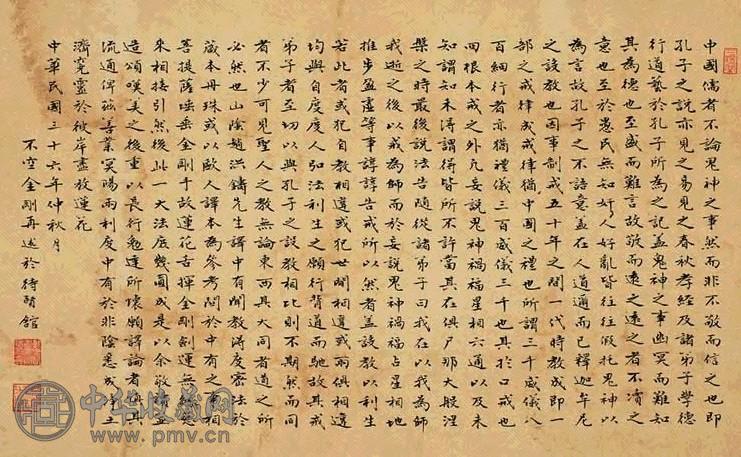 中國儒者不論鬼神之事然而非不敬而信之也即
孔子之說亦見之易見之春秋孝經及諸弟子學德
行道藝於孔子所為之記蓋鬼神之事幽冥而難知
其為德也至盛而難言故敬而遠之遠之者不瀆之
意也至於愚民無知奸人好亂皆往往假托鬼神以
為言故孔子之不語意蓋在人道通而已釋迦牟尼
之設教也因事制戒五十年之間一代時教成即一
部之戒律戒律猶中國之禮也所謂三千威儀八
百細行者亦猶禮儀三百威儀三千也其於口戒也
四根本戒之外凡妄說鬼神禍福星相六通以及未
知謂知未得謂得皆所不許當其在俱尸那大般涅
槃之時最後說法告隨從諸弟子曰我在以我為師
我逝之後以戒為師而於妄說鬼神禍福占星相地
推步盈虛等事諄諄告戒所以然者蓋設教以利生
若此者或犯自教相違或犯世間相違或兩俱相違
均與自度度人弘法利生之願行背道而馳故其戒
弟子者至切以與孔子之設教相比則不期然而同
者不少可見聖人之教無論東西具大同者道之所
必然也山陰趙洪鑄先生譯中有聞教得度密法於
藏本丹珠或以歐人譯本為參考問於中有之
菩提薩埵垂金剛手放蓮花舌揮金剛劍運無
來相接引然後此一大法庶幾圓成是以余敬
造頌嘆美之後重以長行勉達所懷願譯論者
流通俾弦善業冥陽兩利度中有於非陰悉成
濟冤靈於彼岸盡放蓮花
中華民國三十六年仲秋月
不空金剛再述於待醒館
中华收藏网
www.pmv.cn